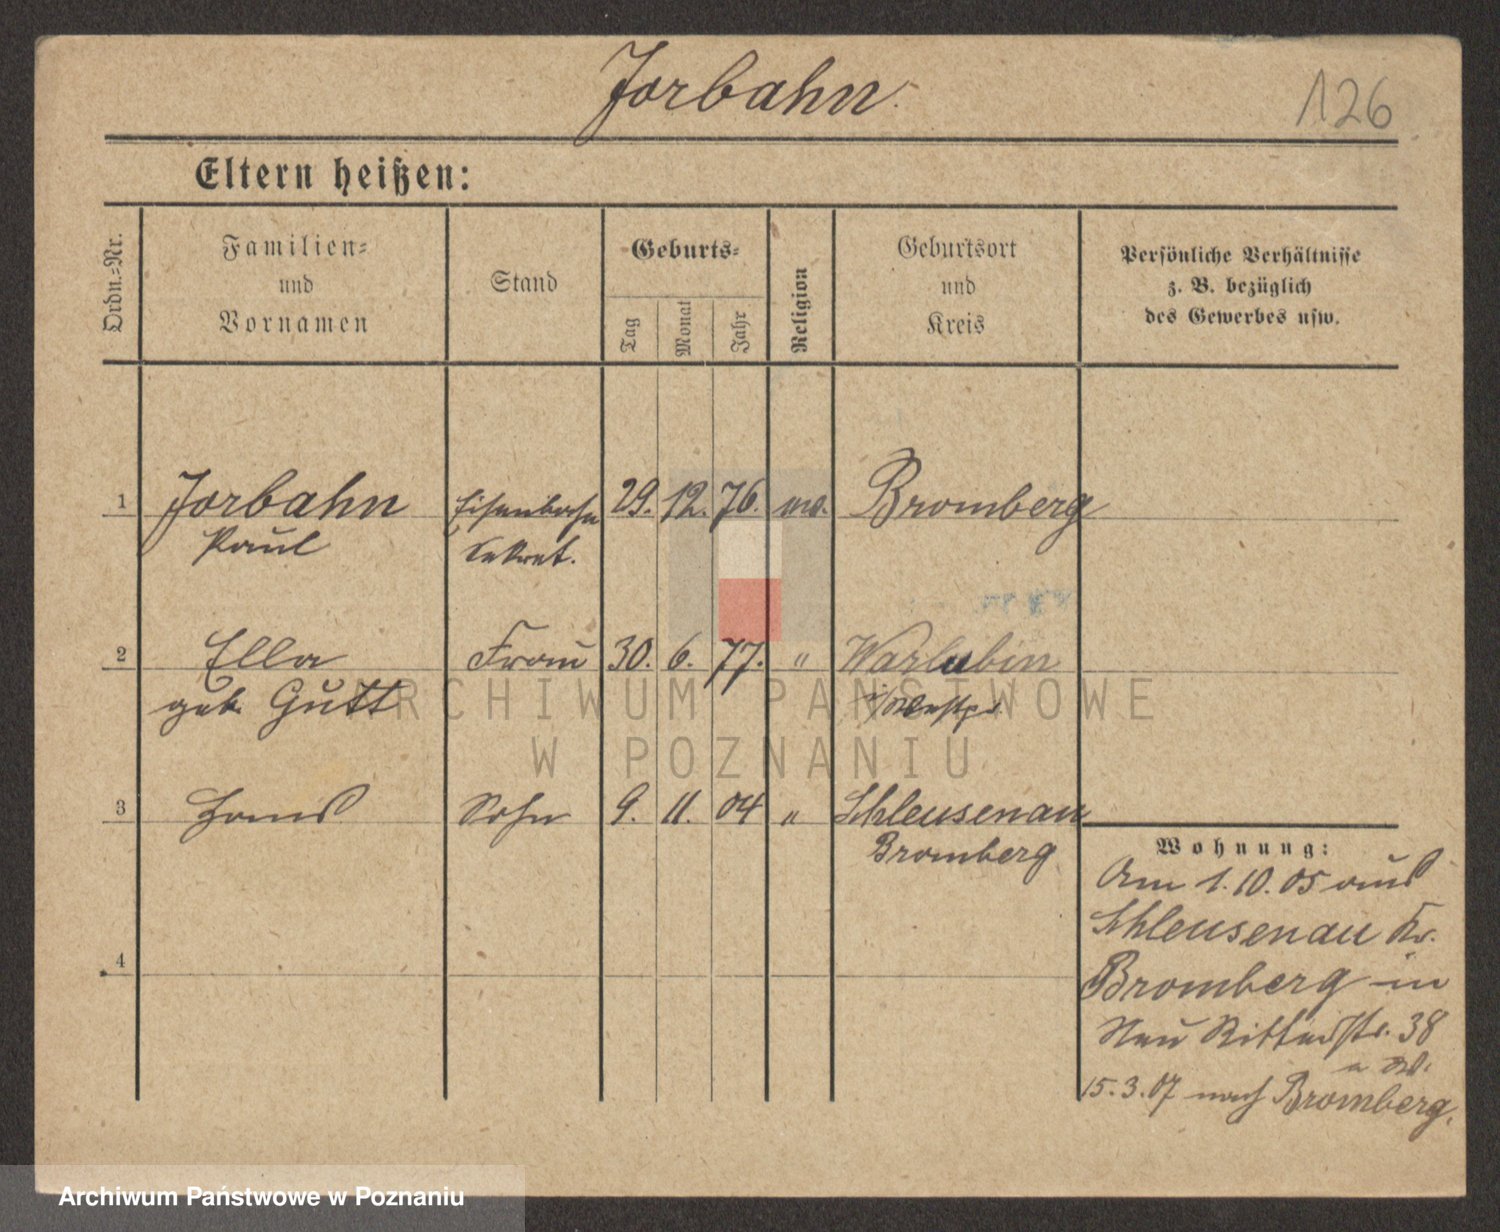 Jorbahn
126
Eltern heißen:
Ordn.-Nr.
Familien-
und
Vornamen
Stand
Geburts-
Tag
Monat
Jahr
Religion
Geburtsort
und
Kreis
Persönliche Verhältnisse
z. B. bezüglich
des Gewerbes usw.
1 Jorbahn Eisenbahn 29. 12. 76. Bromberg
Paul Sekret.
2 Ella Frau 30. 6. 77. " Warlubin
geb. Gutt i/Westpr.
3 Hans Sohn 9. 11. 04 " Schleusenau
Bromberg
4
Wohnung:
Am 1.10.05 aus
Schleusenau Kr.
Bromberg in
Neu Ritterstr. 38
15.3.07 nach Bromberg.
ARCHIWUM PAŃSTWOWE
W POZNANIU
Archiwum Państwowe w Poznaniu